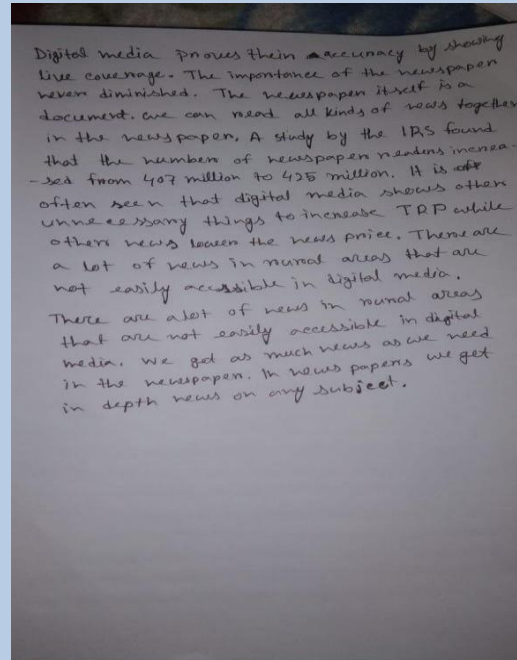 Digital media proves their accuracy by showing
live coverage. The importance of the newspaper
never diminished. The newspaper itself is a
document. we can read all kinds of news together
in the newspaper. A study by the IRS found
that the number of newspaper readers increa-
-sed from 407 million to 425 million. It is
often seen that digital media shows other
unnecessary things to increase TRP while
others news lower the news price. There are
a lot of news in rural areas that are
not easily accessible in digital media.
There are a lot of news in rural areas
that are not easily accessible in digital
media. We get as much news as we need
in the newspaper. In news papers we get
in depth news on any subject.